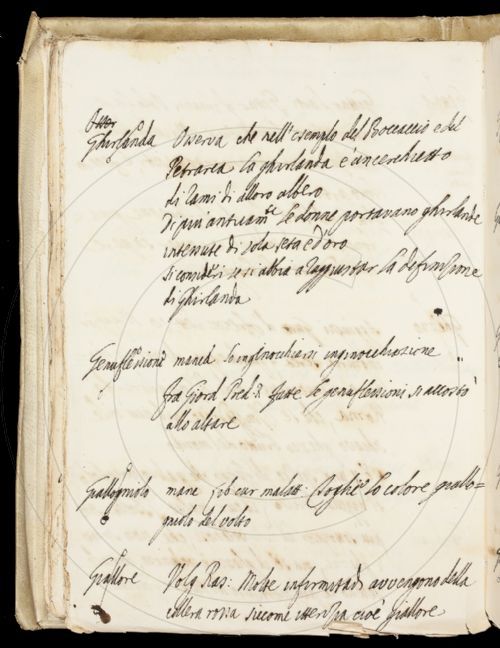 Osser
Ghirlanda Osserva che nell'esempio del Boccaccio e del
Petrarca la ghirlanda è un cerchietto
di rami di alloro albero
Di piu' anticam.te le donne portavano ghirlande
intessute di sola seta ed'oro
si consideri se si abbia a raggiustar la definizione
di Ghirlanda
Genuflessione manca Inginocchiarsi inginocchiazione
fra Giord Pred: R fatte le genuflessioni si accostò
allo altare
Giallognolo manc lib cur malatt: Toglie lo colore giallo=
gnolo del volto
Giallore Volg Ras: Molte infirmitadi avvengono della
collera rossa siccome itterizia cioè giallore